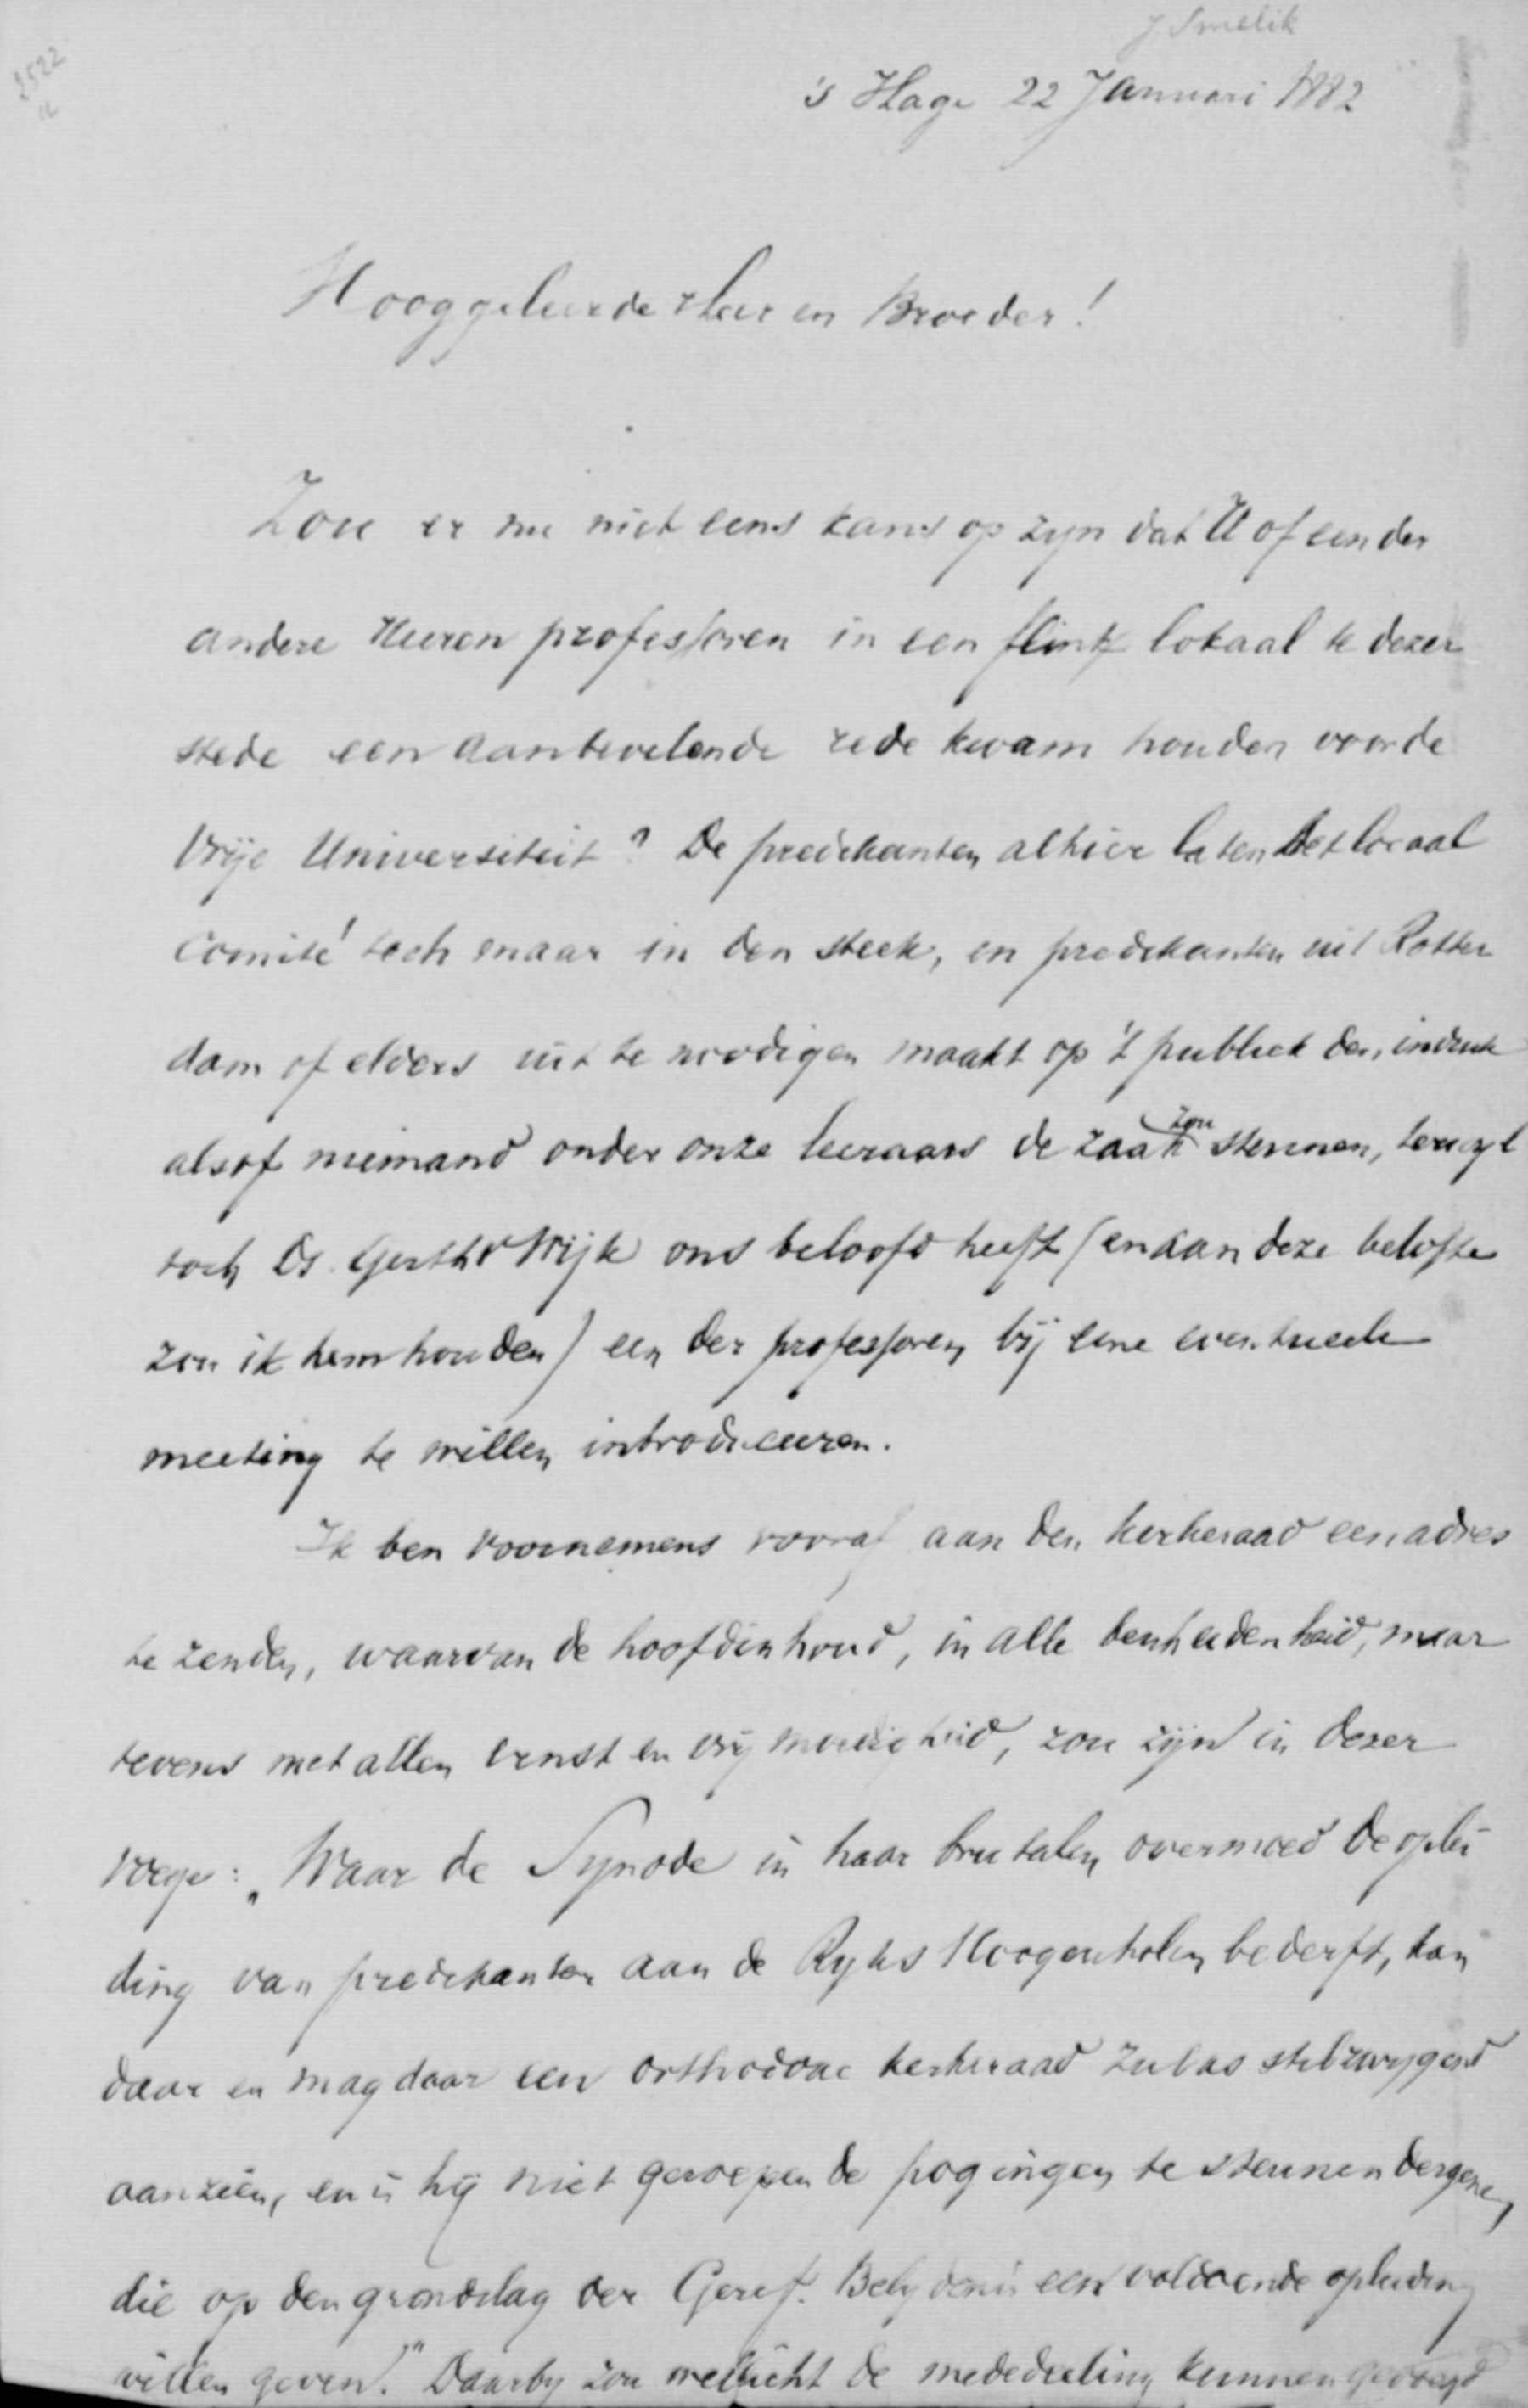 J Smelik
2522
's Hage 22 Januari 1882
Hooggeleerde Heer en Broeder!
Zou er nu niet eens kans op zijn dat U of een der
andere Heeren professoren in een flink lokaal te dezer
stede een aanbevelende rede kwam houden voor de
Vrije Universiteit? De predikanten alhier laten het locaal
Comité toch maar in den steek, en predikanten uit Rotter
dam of elders uit te noodigen maakt op 't publiek den indruk
alsof niemand onder onze leeraars de zaak zou steunen, terwyl
toch Ds. Gerth v Wijk ons beloofd heeft (en aan deze belofte
zou ik hem houden) een der professoren bij eene eventueele
meeting te willen introduceeren.
Ik ben voornemens vooraf aan den kerkeraad een adres
te zenden, waarvan de hoofdinhoud, in alle bescheidenheid, maar
tevens met allen ernst en vrijmoedigheid, zou zijn in dezer
voege: „Waar de Synode in haar brutalen overmoed de oplei
ding van predikanten aan de Ryks Hoogescholen bederft, kan
daar en mag daar een orthodoxe kerkeraad zulks stilzwygend
aanzien, en is hij niet geroepen de pogingen te steunen dergenen
die op den grondslag der Geref. Belydenis een voldoende opleiding
willen geven." Daarby zou wellicht de mededeeling kunnen gevoegd